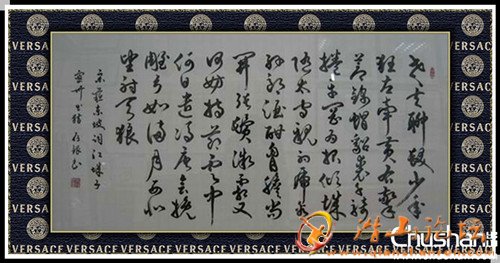 VERSACE VERSACE VERSACE VERSACE VERSACE
老夫聊發少年
狂左牽黃右擎
蒼錦帽貂裘千騎
捲平岡為報傾城
隨太守親射虎看
孫郎酒酣胸膽尚
開張鬢微霜又
何妨持節雲中
何日遣馮唐會挽
雕弓如滿月西北
望射天狼
宋蘇東坡詞江城子
VERSACE VERSACE VERSACE VERSACE VERSACE
Chushan